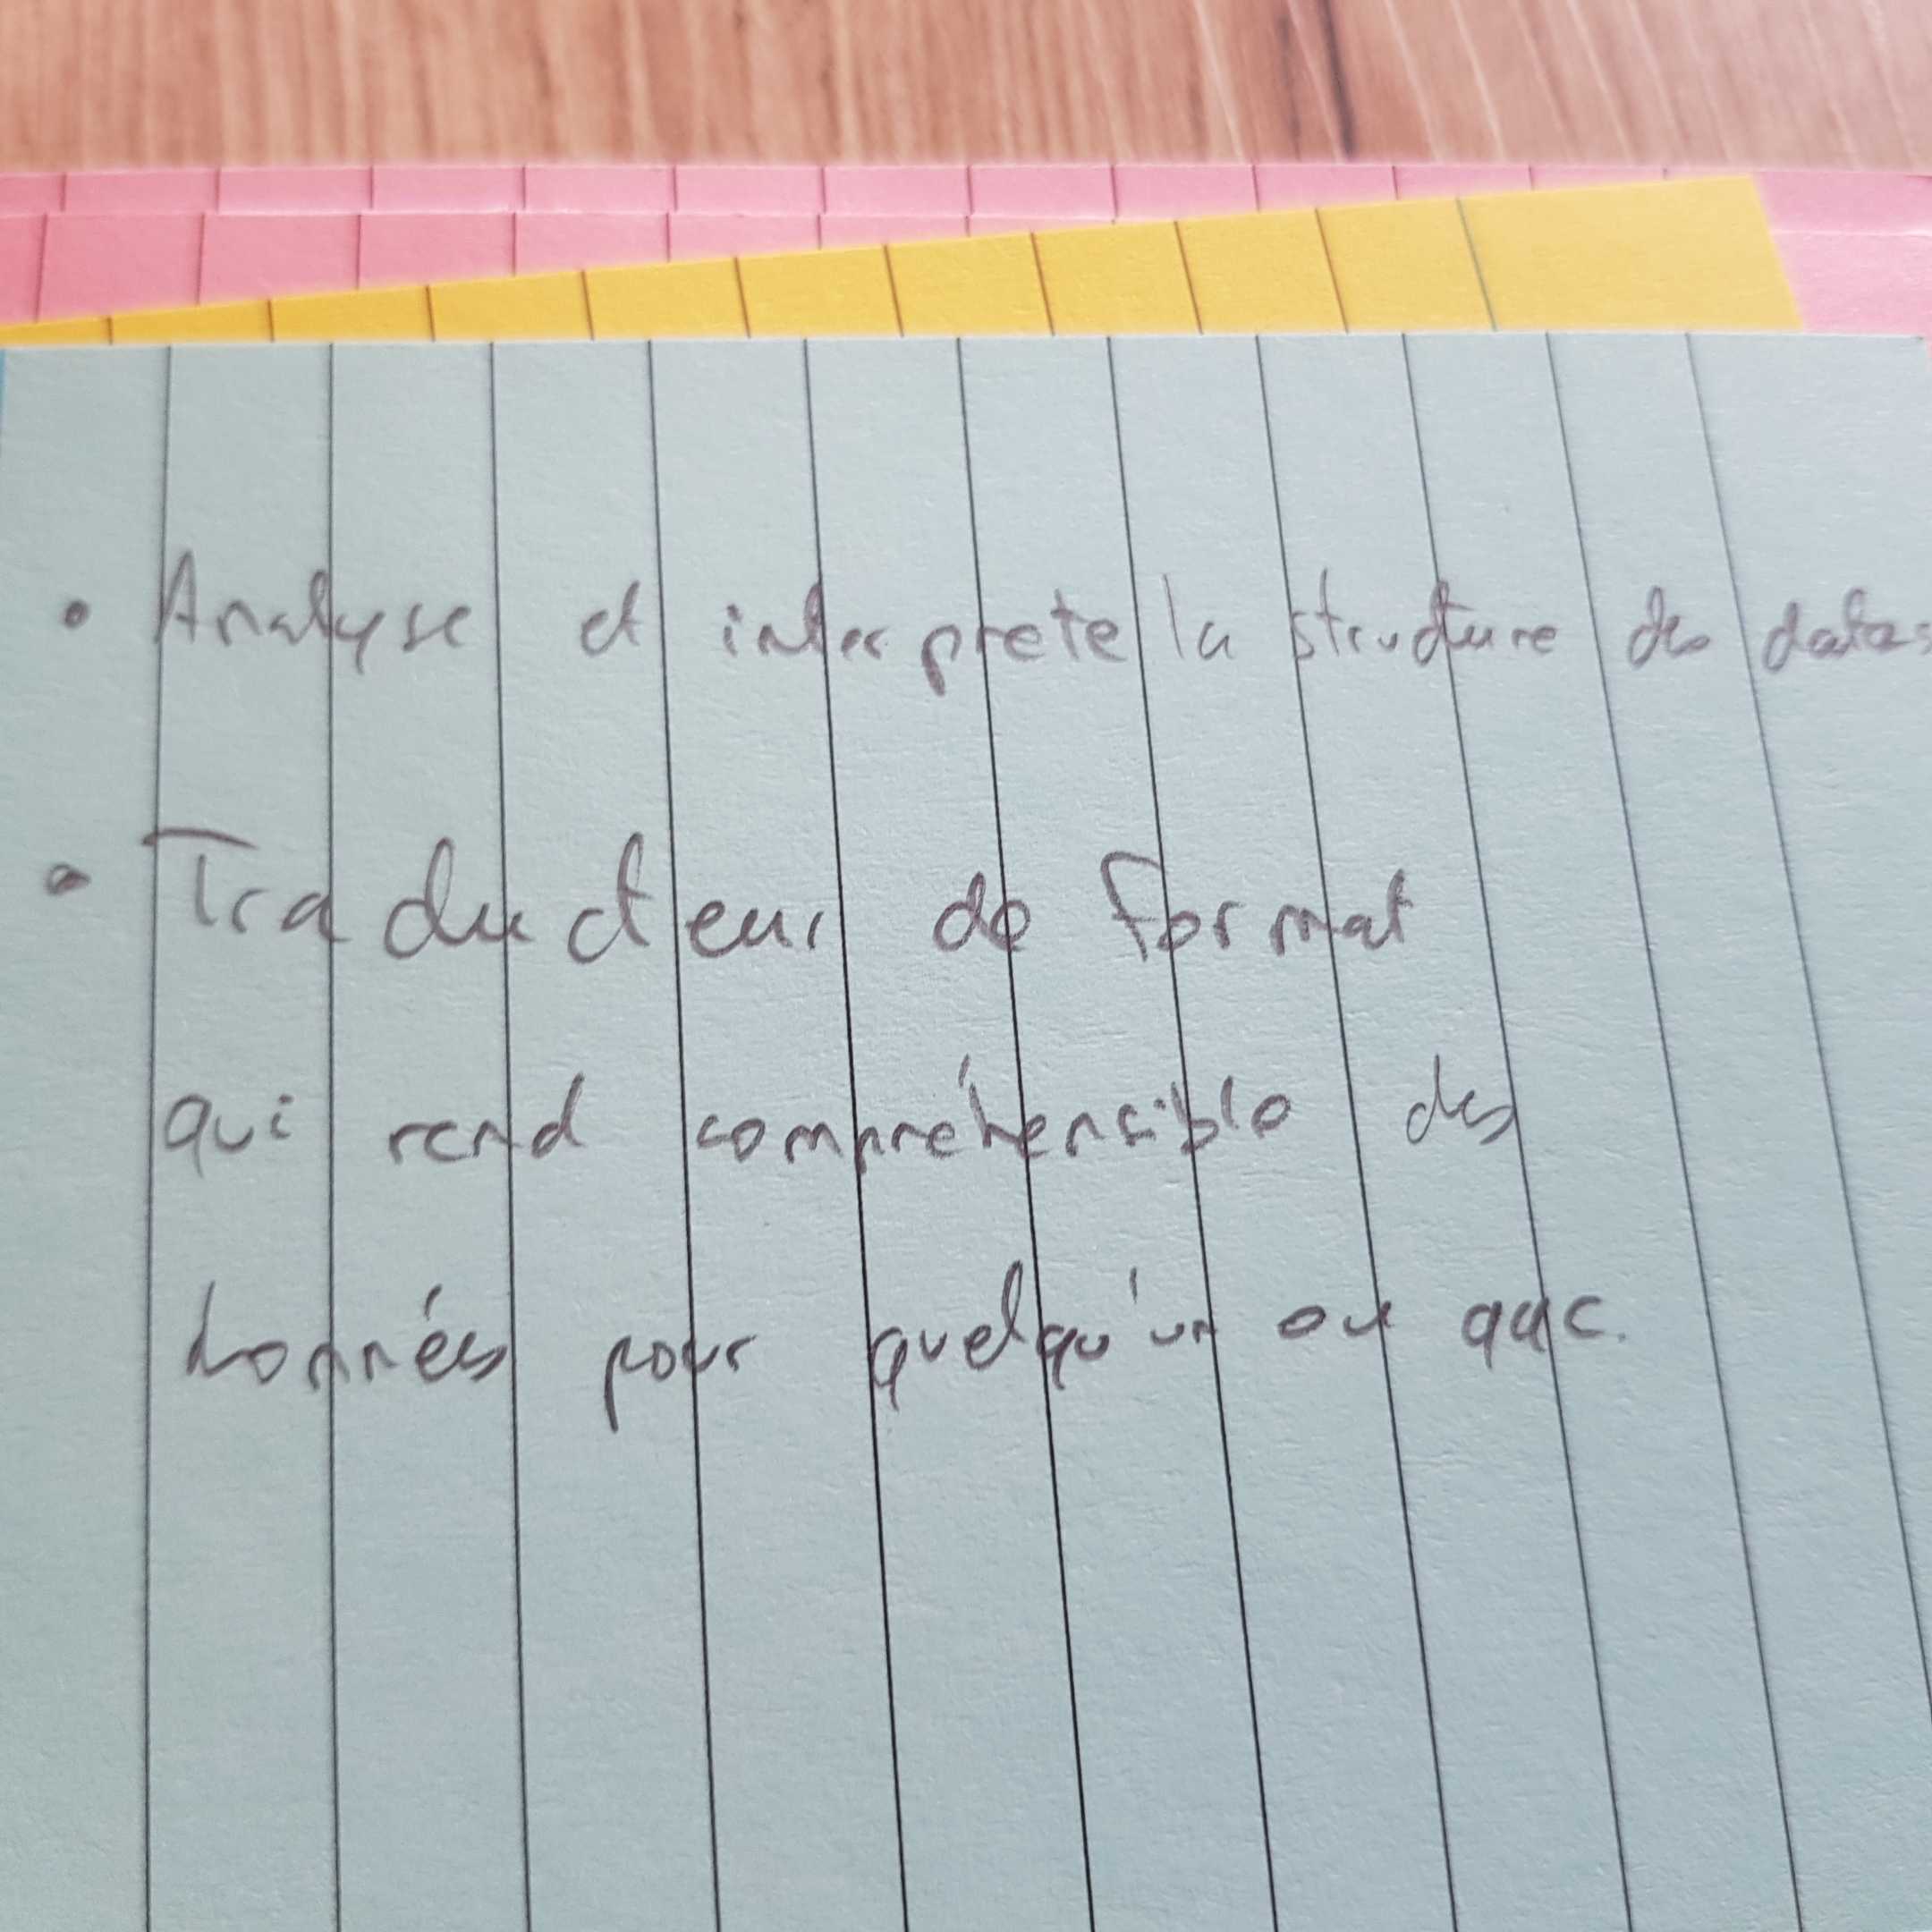 • Analyse et interprete la structure des datas
• Traducteur de format
qui rend compréhensible des
donnés pour quelqu'un ou qqc.